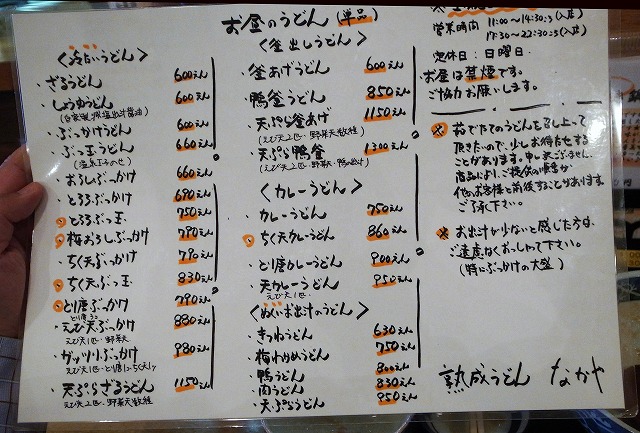 お昼のうどん (単品)
<冷たいうどん>
・ざるうどん 600えん
・しょうゆうどん 600えん
・ぶっかけうどん 600えん
・ぶっ玉うどん 660えん
(温泉玉子のせ)
・おろしぶっかけ 660えん
・とろろぶっかけ 690えん
・とろろぶっ玉 750えん
・梅おろしぶっかけ 790えん
・ちく天ぶっかけ 790えん
・ちく天ぶっ玉 830えん
・とり唐ぶっかけ 790えん
とり唐2コ
・えび天ぶっかけ 880えん
えび天1匹・野菜天
・ガッツリぶっかけ 980えん
えび天1匹・とり唐1コ・ちく天1ケ
・天ぷらざるうどん 1150えん
えび天2匹・野菜天数種
<釜出しうどん>
・釜あげうどん 600えん
・鴨釜うどん 850えん
・天ぷら釜あげ 1150えん
(えび天2匹・野菜天数種)
・天ぷら鴨釜 1300えん
(えび天2匹・野菜天・鴨だけ)
<カレーうどん>
・カレーうどん 750えん
・ちく天カレーうどん 860えん
・とり唐カレーうどん 900えん
・天カレーうどん 950えん
えび天1匹
<ぬくいお出汁のうどん>
・きつねうどん 630えん
・梅わかめうどん 750えん
・鴨うどん 800えん
・肉うどん 830えん
・天ぷらうどん 950えん
営業時間 11:00〜14:30(入店)
17:30〜22:30(入店)
定休日:日曜日.
お昼は禁煙です。
ご協力お願いします。
※ 茹でたてのうどんを召し上って
頂きたいので、少しお待たせする
ことがあります。申し訳ございません。
商品により、ご提供の順番が
他のお客様と前後することがあります。
ご了承下さい。
※ お出汁が少ないと感じた方は
ご遠慮なくおっしゃって下さい。
(特にぶっかけの大盛)
熟成うどん なかや